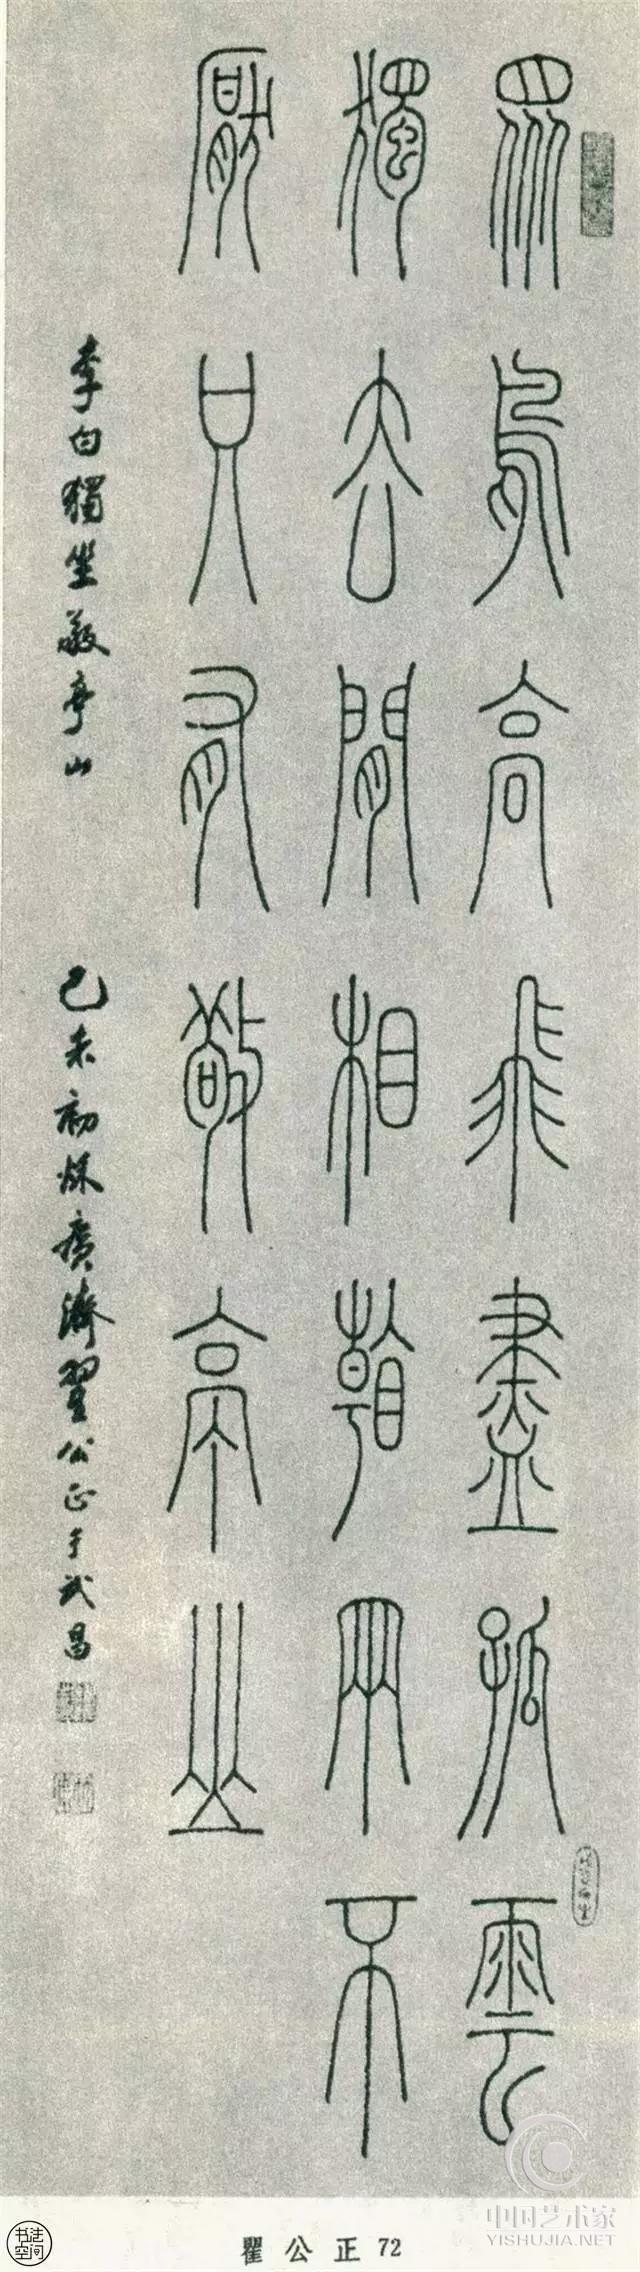 眾鳥高飛盡孤雲
獨去閒相看兩不
厭只有敬亭山
李白獨坐敬亭山
己未初秋廣濟瞿公正于武昌
瞿公正 72
书法空间
中国艺术家
YISHUJIA.NET